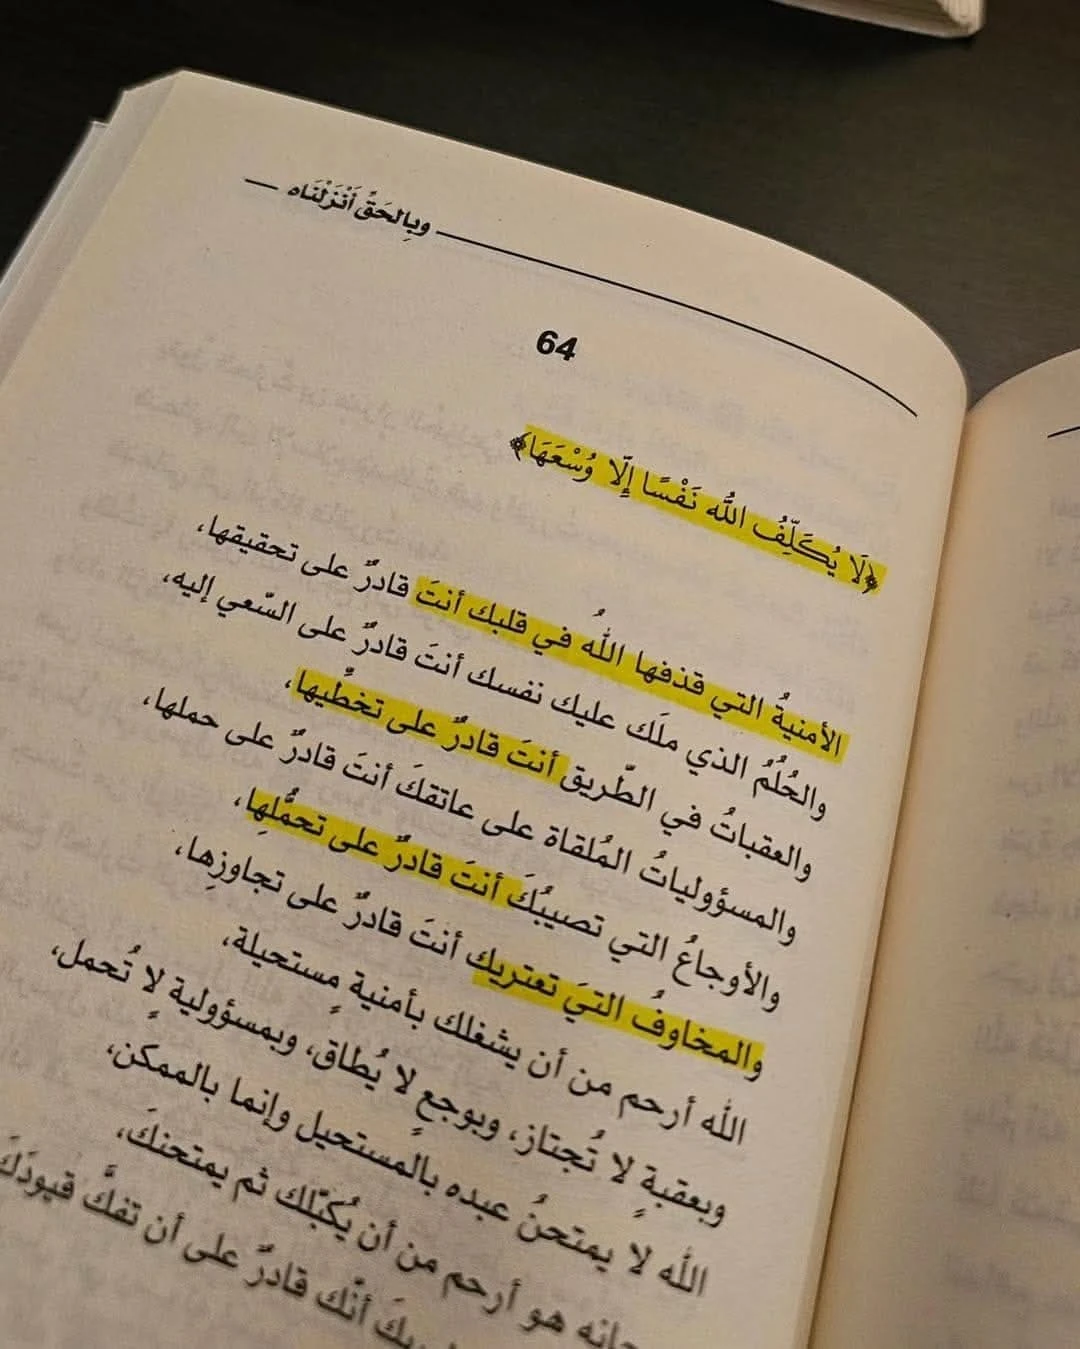 وبِالحَقِّ أَنْزَلْنَاه
64
﴿لَا يُكَلِّفُ اللَّه نَفْسًا إِلَّا وُسْعَهَا﴾
الأمنيةُ التي قذفها اللهُ في قلبك أنتَ قادرٌ على تحقيقها،
والحُلُمُ الذي ملَك عليك نفسك أنتَ قادرٌ على السّعي إليه،
والعقباتُ في الطّريق أنتَ قادرٌ على تخطِّيها،
والمسؤولياتُ المُلقاة على عاتقكَ أنتَ قادرٌ على حملها،
والأوجاعُ التي تصيبُكَ أنتَ قادرٌ على تحمُّلِها،
والمخاوفُ التي تعتريك أنتَ قادرٌ على تجاوزِها،
الله أرحم من أن يشغلك بأمنيةٍ مستحيلة،
وبعقبةٍ لا تُجتاز، وبوجعٍ لا يُطاق، وبمسؤوليةٍ لا تُحمل،
الله لا يمتحنُ عبده بالمستحيل وإنما بالممكن،
هو أرحم من أن يُكبّلك ثم يمتحنكَ،
أنّك قادرٌ على أن تفكَّ قيودَكَ